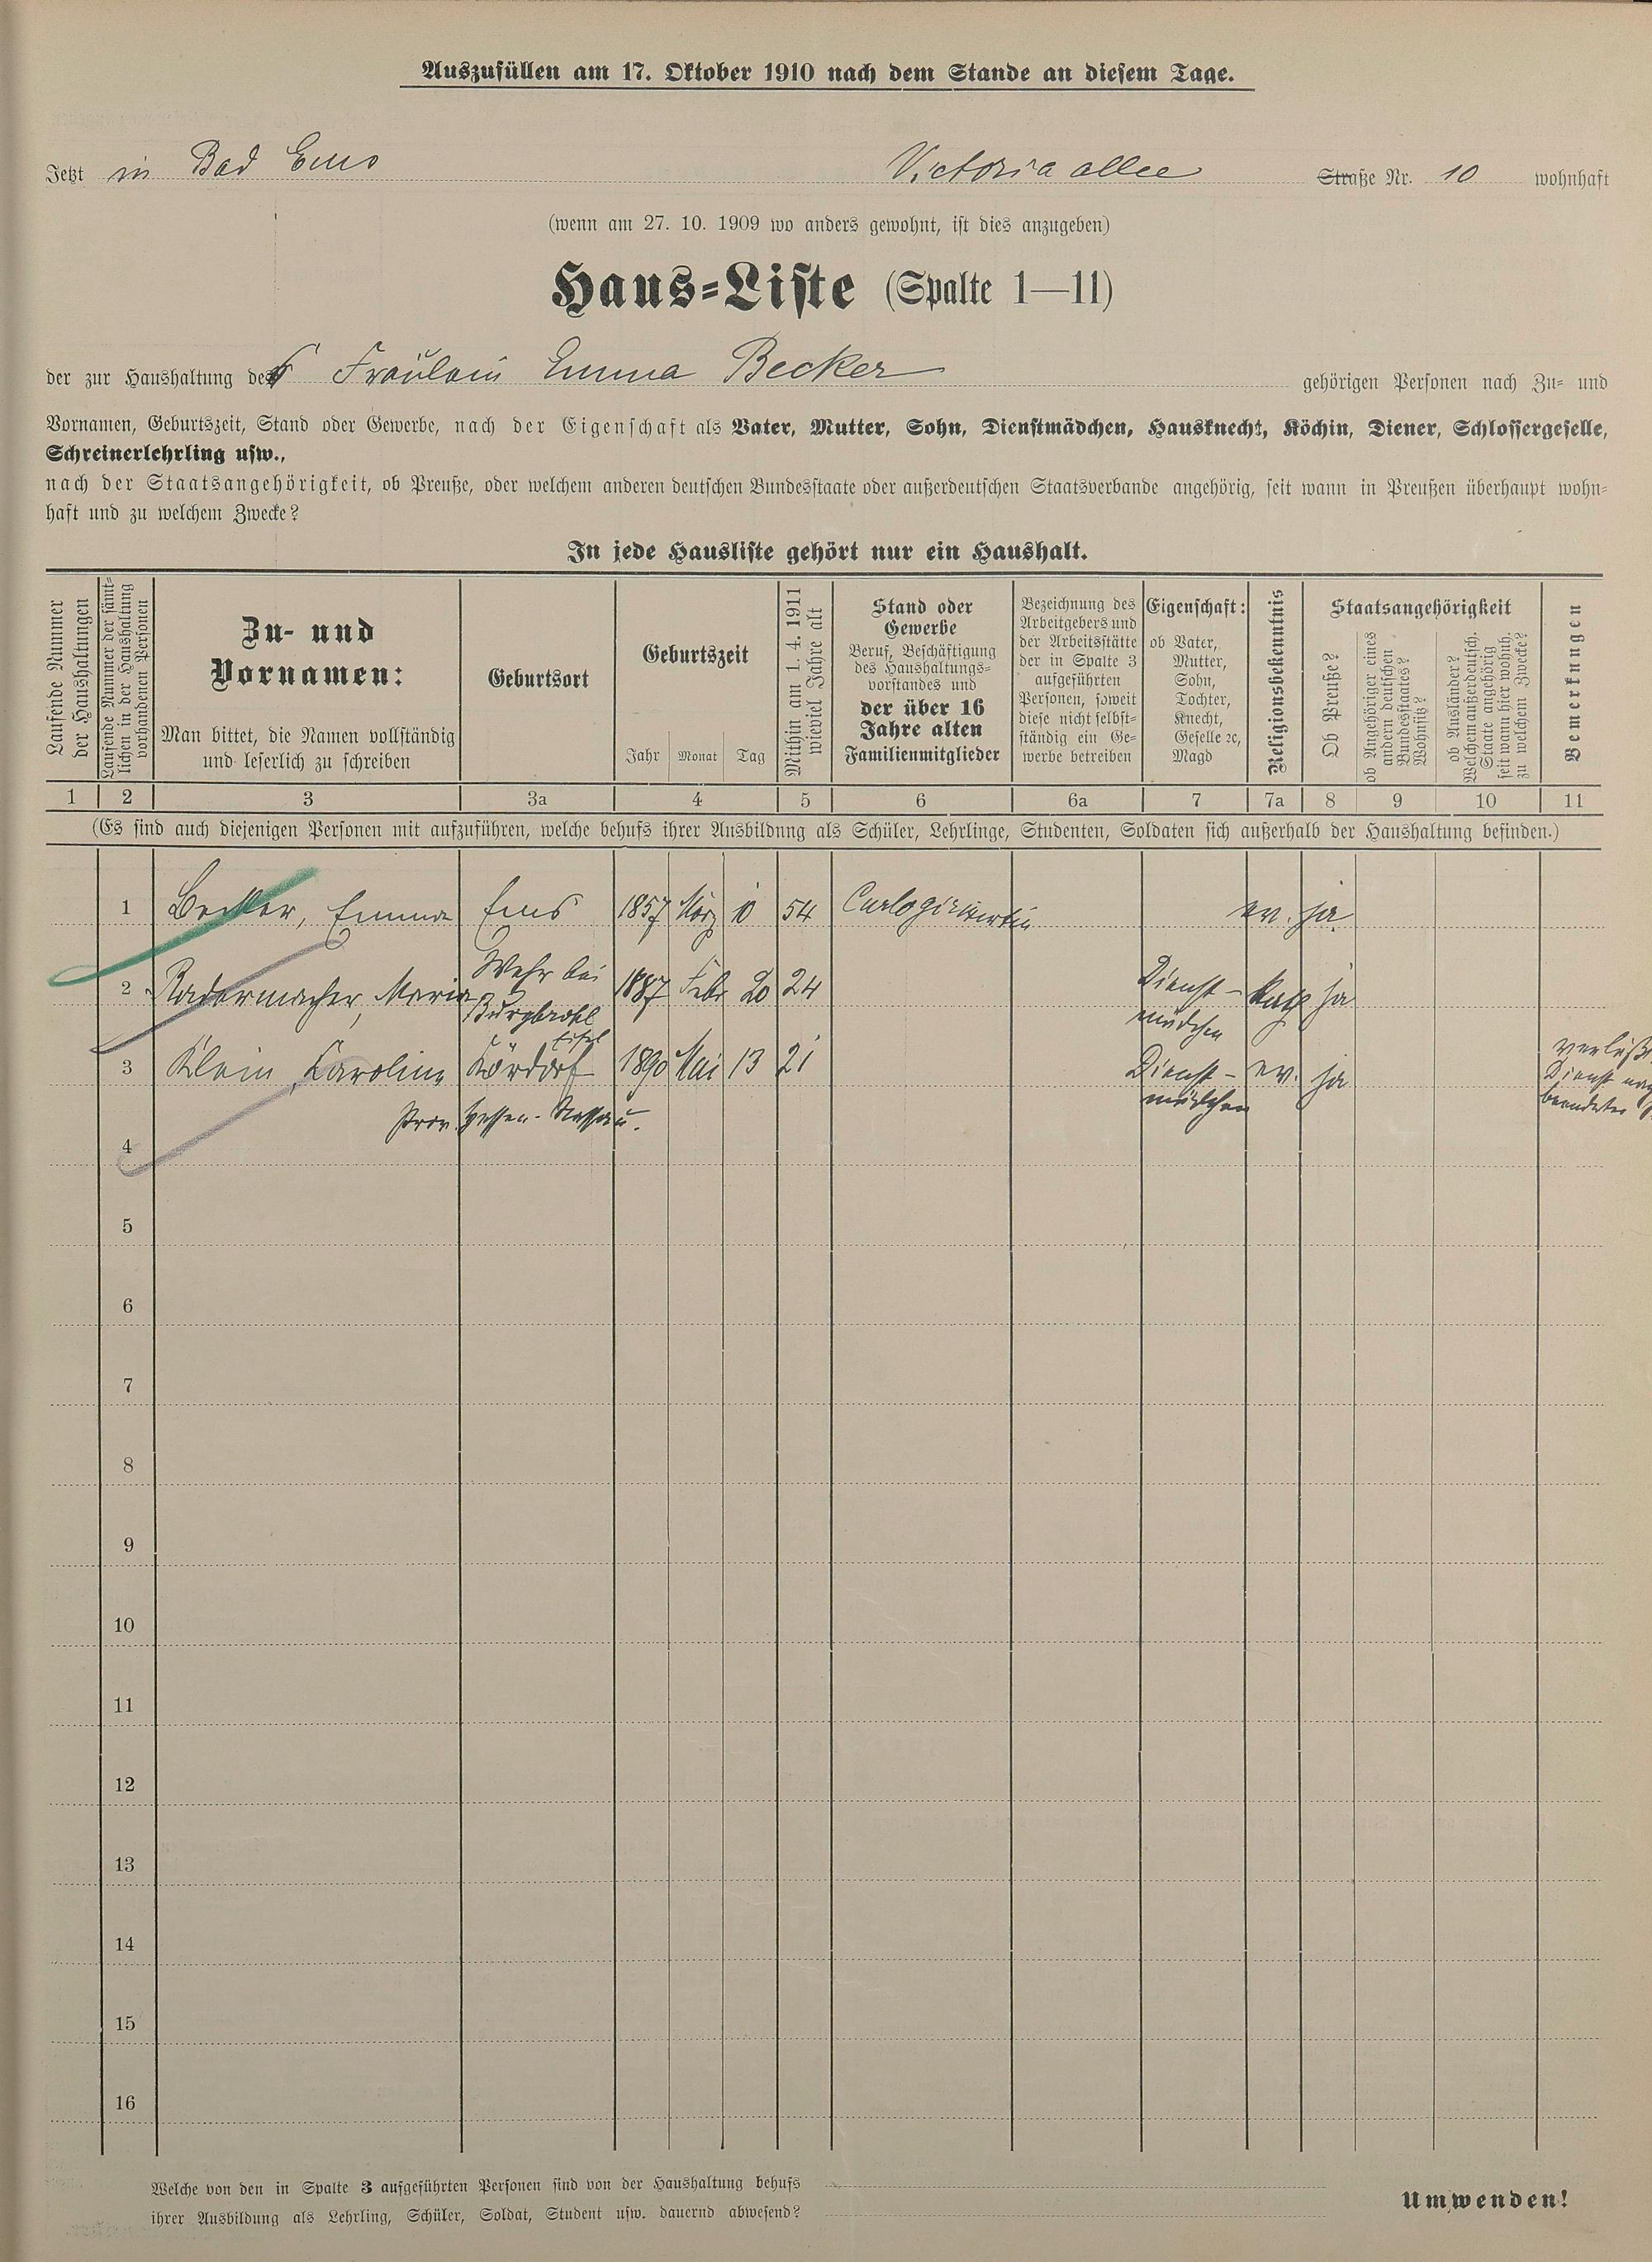 Auszufüllen am 17. Oktober 1910 nach dem Stande an diesem Tage.
Jetzt in Bad Ems Victoria allee Straße Nr. 10 wohnhaft
(wenn am 27. 10. 1909 wo anders gewohnt, ist dies anzugeben)
Haus-Liste (Spalte 1—11)
der zur Haushaltung des Fräulein Emma Becker gehörigen Personen nach Zu- und
Vornamen, Geburtszeit, Stand oder Gewerbe, nach der Eigenschaft als Vater, Mutter, Sohn, Dienstmädchen, Hausknecht, Köchin, Diener, Schlossergeselle,
Schreinerlehrling usw.,
nach der Staatsangehörigkeit, ob Preuße, oder welchem anderen deutschen Bundesstaate oder außerdeutschen Staatsverbande angehörig, seit wann in Preußen überhaupt wohn-
haft und zu welchem Zwecke?
In jede Hausliste gehört nur ein Haushalt.
Laufende Nummer
der Haushaltungen
Laufende Nummer der sämt-
lichen in der Haushaltung
vorhandenen Personen
Zu- und
Vornamen:
Man bittet, die Namen vollständig
und leserlich zu schreiben
Geburtsort
Geburtszeit
Jahr Monat Tag
Mithin am 1. 4. 1911
wieviel Jahre alt
Stand oder
Gewerbe
Beruf, Beschäftigung
des Haushaltungs-
vorstandes und
der über 16
Jahre alten
Familienmitglieder
Bezeichnung des
Arbeitgebers und
der Arbeitsstätte
der in Spalte 3
aufgeführten
Personen, soweit
diese nicht selbst-
ständig ein Ge-
werbe betreiben
Eigenschaft:
ob Vater,
Mutter,
Sohn,
Tochter,
Knecht,
Geselle ꝛc,
Magd
Religionsbekenntnis
Staatsangehörigkeit
Ob Preuße?
ob Angehöriger eines
andern deutschen
Bundesstaates?
Wohnsitz?
ob Ausländer?
Welchem außerdeutsch.
Staate angehörig
seit wann hier wohnh.
zu welchem Zwecke?
Bemerkungen
1 2 3 3a 4 5 6 6a 7 7a 8 9 10 11
(Es sind auch diejenigen Personen mit aufzuführen, welche behufs ihrer Ausbildnng als Schüler, Lehrlinge, Studenten, Soldaten sich außerhalb der Haushaltung befinden.)
1 Becker, Emma Ems 1857 März 54 ev. ja.
2 Radermacher, Maria Wehr bei 1887 Febr 20 24 Dienst- kath ja
Burgbrohl mädchen
Eifel
3 Klein, Caroline Kördorf 1890 Mai 13 21 Dienst- ev. ja verläßt
mädchen Dienst
Prov. Hessen-Nassau.
4
5
6
7
8
9
10
11
12
13
14
15
16
Welche von den in Spalte 3 aufgeführten Personen sind von der Haushaltung behufs
ihrer Ausbildung als Lehrling, Schüler, Soldat, Student usw. dauernd abwesend?
Umwenden!